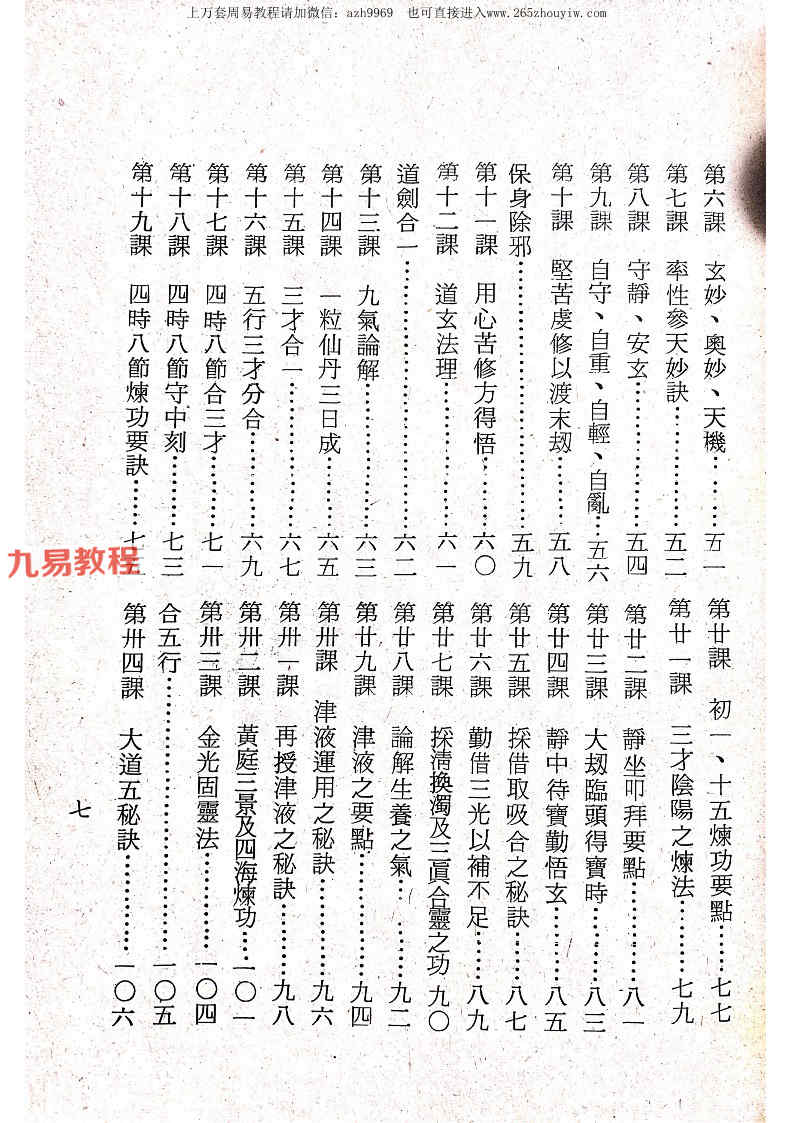 上万套周易教程请加微信：azh9969　也可直接进入www.265zhouyiw.com
第六課　玄妙、奧妙、天機……五一
第七課　率性參天妙訣……五二
第八課　守靜、安玄……五四
第九課　自守、自重、自輕、自亂…五六
第十課　堅苦虔修以渡末刼……五八
保身除邪……五九
第十一課　用心苦修方得悟……六〇
第十二課　道玄法理……六一
道劍合一……六二
第十三課　九氣論解……六三
第十四課　一粒仙丹三日成……六五
第十五課　三才合一……六七
第十六課　五行三才分合……六九
第十七課　四時八節合三才……七一
第十八課　四時八節守中刻……七三
第十九課　四時八節煉功要訣……七五
九易教程
第廿課　初一、十五煉功要點……七七
第廿一課　三才陰陽之煉法……七九
第廿二課　靜坐叩拜要點……八一
第廿三課　大刼臨頭得寶時……八三
第廿四課　靜中待寶勤悟玄……八五
第廿五課　採借取吸合之秘訣……八七
第廿六課　勤借三光以補不足……八九
第廿七課　採清換濁及三眞合靈之功九〇
第廿八課　論解生養之氣……九二
第廿九課　津液之要點……九四
第卅課　津液運用之秘訣……九六
第卅一課　再授津液之秘訣……九八
第卅二課　黃庭三景及四海煉功……一〇一
第卅三課　金光固靈法……一〇四
合五行……一〇五
第卅四課　大道五秘訣……一〇六
七